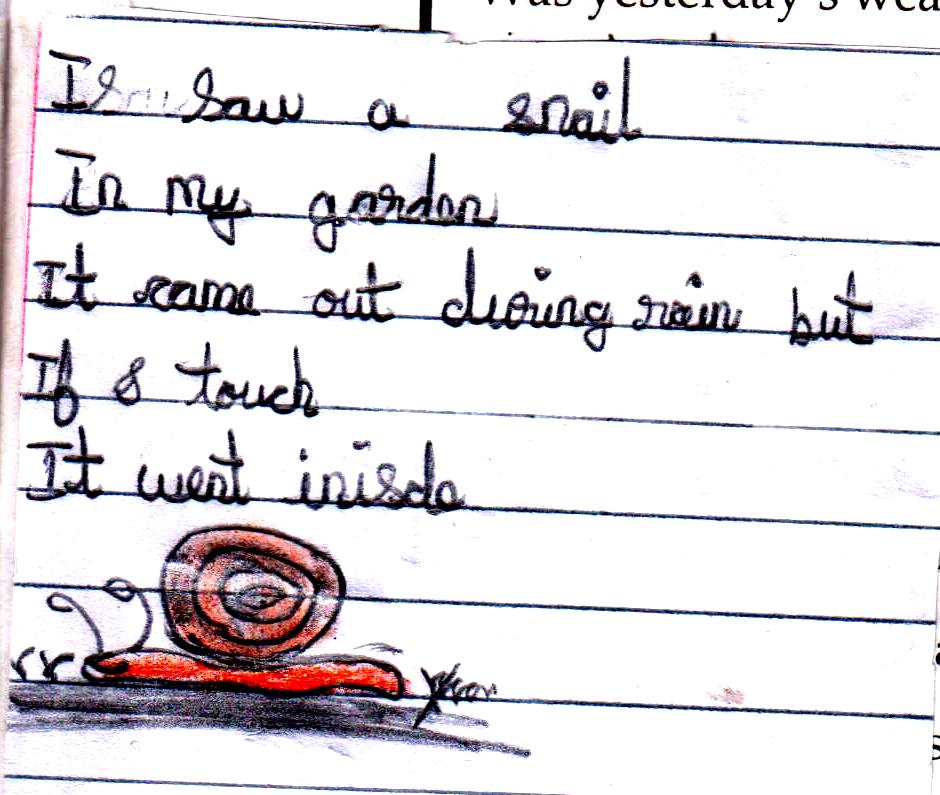 Was yesterday's
I saw a snail
In my garden
It came out during rain but
If I touch
It went inisde